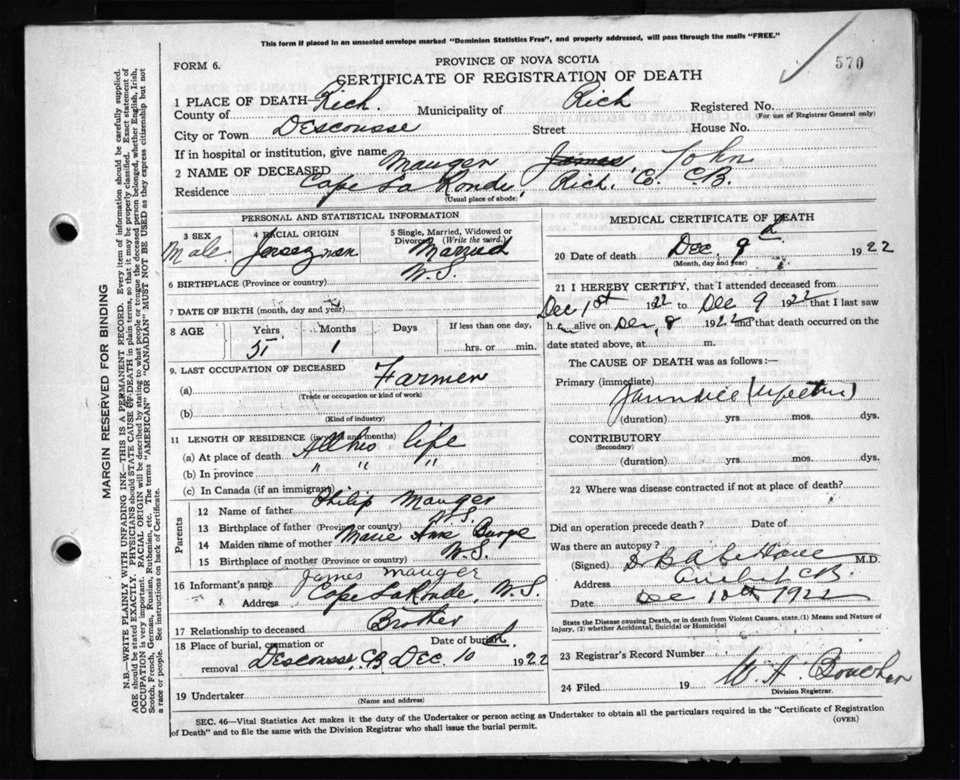 This form if placed in an unsealed envelope marked "Dominion Statistics Free", and properly addressed, will pass through the mails "FREE."
FORM 6.
PROVINCE OF NOVA SCOTIA
570
CERTIFICATE OF REGISTRATION OF DEATH
1 PLACE OF DEATH— Rich. Municipality of Rich Registered No.
County of (For use of Registrar General only)
City or Town Descousse Street House No.
If in hospital or institution, give name
2 NAME OF DECEASED Mauger James, John
Residence Cape La Ronde, Rich. C. C.B.
(Usual place of abode)
PERSONAL AND STATISTICAL INFORMATION
3 SEX 4 RACIAL ORIGIN 5 Single, Married, Widowed or Divorced (Write the word.)
Male Jerseyman Married
6 BIRTHPLACE (Province or country) N.S.
7 DATE OF BIRTH (month, day and year)
8 AGE Years Months Days If less than one day,
51 1 hrs. or min.
9. LAST OCCUPATION OF DECEASED
(a) Farmer
(Trade or occupation or kind of work)
(b)
(Kind of industry)
11 LENGTH OF RESIDENCE (in years and months)
(a) At place of death All his life
(b) In province " " "
(c) In Canada (if an immigrant)
Parents
12 Name of father Philip Mauger
13 Birthplace of father (Province or country) N.S.
14 Maiden name of mother Marie Ann
15 Birthplace of mother (Province or country) N.S.
16 Informant's name James Mauger
" Address Cape LaRonde, N.S.
17 Relationship to deceased Brother
18 Place of burial, cremation or removal Date of burial
Descousse, C.B. Dec. 10 1922
19 Undertaker
(Name and address)
MEDICAL CERTIFICATE OF DEATH
20 Date of death Dec. 9 1922
(Month, day and year)
21 I HEREBY CERTIFY, that I attended deceased from
Dec 1st 1922 to Dec 9 1922 that I last saw
h alive on Dec, 8 1922 and that death occurred on the
date stated above, at m.
The CAUSE OF DEATH was as follows:—
Primary (immediate)
Jaundice
(duration) yrs mos. dys.
CONTRIBUTORY
(Secondary)
(duration) yrs mos. dys.
22 Where was disease contracted if not at place of death?
Did an operation precede death? Date of
Was there an autopsy?
(Signed) Dr B A LeBlanc M.D.
Address Arichat C.B.
Date Dec 10th 1922
State the Disease causing Death, or in death from Violent Causes, state, (1) Means and Nature of
Injury, (2) whether Accidental, Suicidal or Homicidal
23 Registrar's Record Number
24 Filed 19 W. A. Boucher
Division Registrar.
SEC. 46—Vital Statistics Act makes it the duty of the Undertaker or person acting as Undertaker to obtain all the particulars required in the "Certificate of Registration
of Death" and to file the same with the Division Registrar who shall issue the burial permit.
(OVER)
MARGIN RESERVED FOR BINDING
N.B.—WRITE PLAINLY WITH UNFADING INK—THIS IS A PERMANENT RECORD. Every item of information should be carefully supplied.
AGE should be stated EXACTLY. PHYSICIANS should STATE CAUSE OF DEATH in plain terms, so that it may be properly classified. Exact statement of
OCCUPATION is very important. RACIAL ORIGIN will be described by stating to what people or tongue the deceased person belonged, whether English, Irish,
Scotch, French, German, Russian, Ruthenian, etc. The terms "AMERICAN" OR "CANADIAN" MUST NOT BE USED as they express citizenship but not
a race or people. See instructions on back of Certificate.